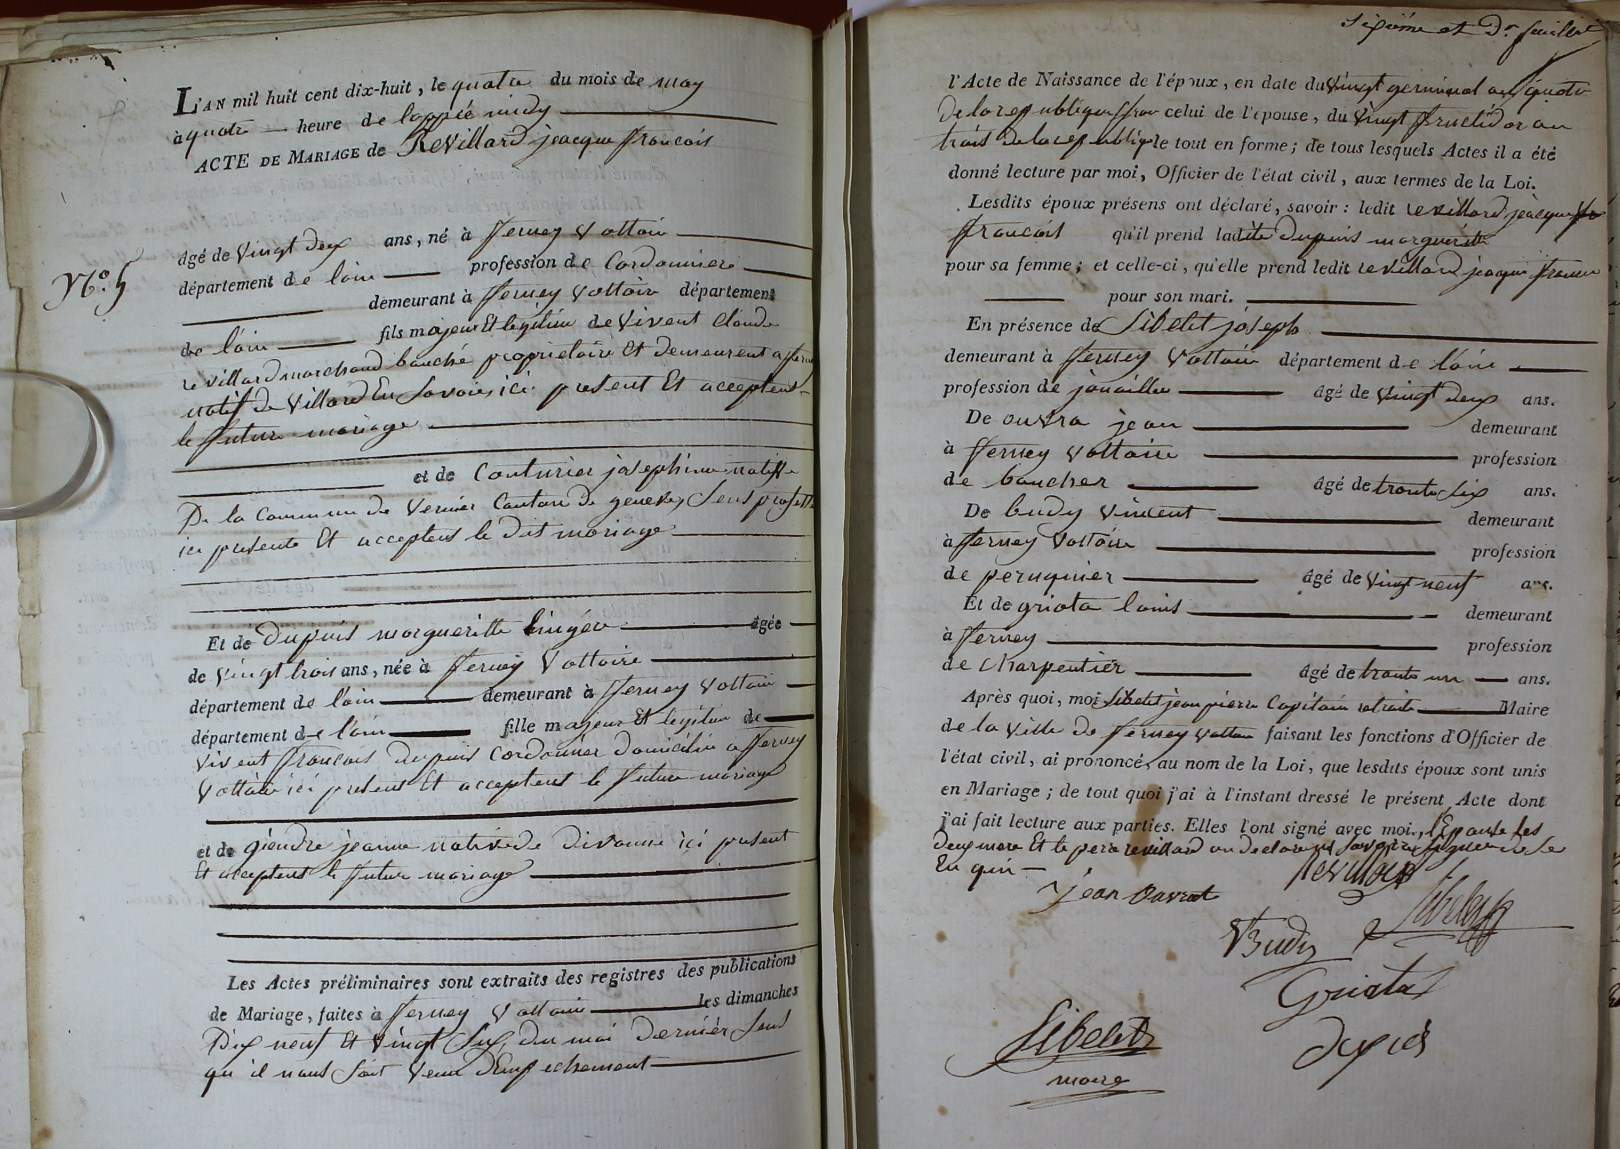 L'AN mil huit cent dix-huit, le quatre du mois de may
à quatre heure de l'apprés midy
ACTE DE MARIAGE de Revillard jeacque francois
âgé de vingt deux ans, né à ferney Voltair
N.º 5
département de l'ain profession de Cordonniere
demeurant à ferney Voltair département
de l'ain fils majeur Et legitime de Vivent Claude
revillard marchand bouché proprietaire Et demeurent a ferney
natif de Villard En Savoie, ici present Et acceptent
le future mariage
et de Couturier josephinne natiffe
De la Commune de Vernier Canton de geneve, Sens profess
ici presente Et acceptens le Dit mariage
Et de Dupuis margueritte lingére âgée
de vingt trois ans, née à ferney Voltaire
département de l'ain demeurant à ferney Voltair
département de l'ain fille majeur Et legitime de
vivent francois dupuis Cordonnier domicilié a ferney
Voltair ici present Et acceptens le future mariage
et de giendre jeanne native de Divonne ici present
Et acceptent le future mariage
Les Actes préliminaires sont extraits des registres des publications
de Mariage, faites à ferney Voltair les dimanches
Dix neuf Et vingt Six, du mai dernier Sens
qu'il nous soit venu D'Empechement
Sixiéme et Dr feuillet
l'Acte de Naissance de l'époux, en date du vingt germinal an quatre
De la republique celui de l'épouse, du vingt fructidor an
trois de la republique le tout en forme; de tous lesquels Actes il a été
donné lecture par moi, Officier de l'état civil, aux termes de la Loi.
Lesdits époux présens ont déclaré, savoir: ledit revillard jeacque
francois qu'il prend ladite dupuis margueritte
pour sa femme; et celle-ci, qu'elle prend ledit revillard jeaque francois
pour son mari.
En présence de Sibelit joseph
demeurant à ferney Voltair département de l'ain
profession de jouaillier âgé de vingt deux ans.
De ouvra jean demeurant
à ferney Voltaire profession
de boucher âgé de trente six ans.
De budy vincent demeurant
à ferney Voltaire profession
de peruquier âgé de vingt neuf ans.
Et de griota louis demeurant
à ferney profession
de charpentier âgé de trente un ans.
Après quoi, moi Sibelit jean pierre Capitain retraite Maire
de la Ville de ferney Voltair faisant les fonctions d'Officier de
l'état civil, ai prononcé, au nom de la Loi, que lesdits époux sont unis
en Mariage; de tout quoi j'ai à l'instant dressé le présent Acte dont
j'ai fait lecture aux parties. Elles l'ont signé avec moi, l'Epouse les
deux mere Et le pere revillard on declare ne savoir signer de se
En quin
Revillard
jean Ouvrat
Sibelit
Budy
Griota
Sibelit
maire
dupuis